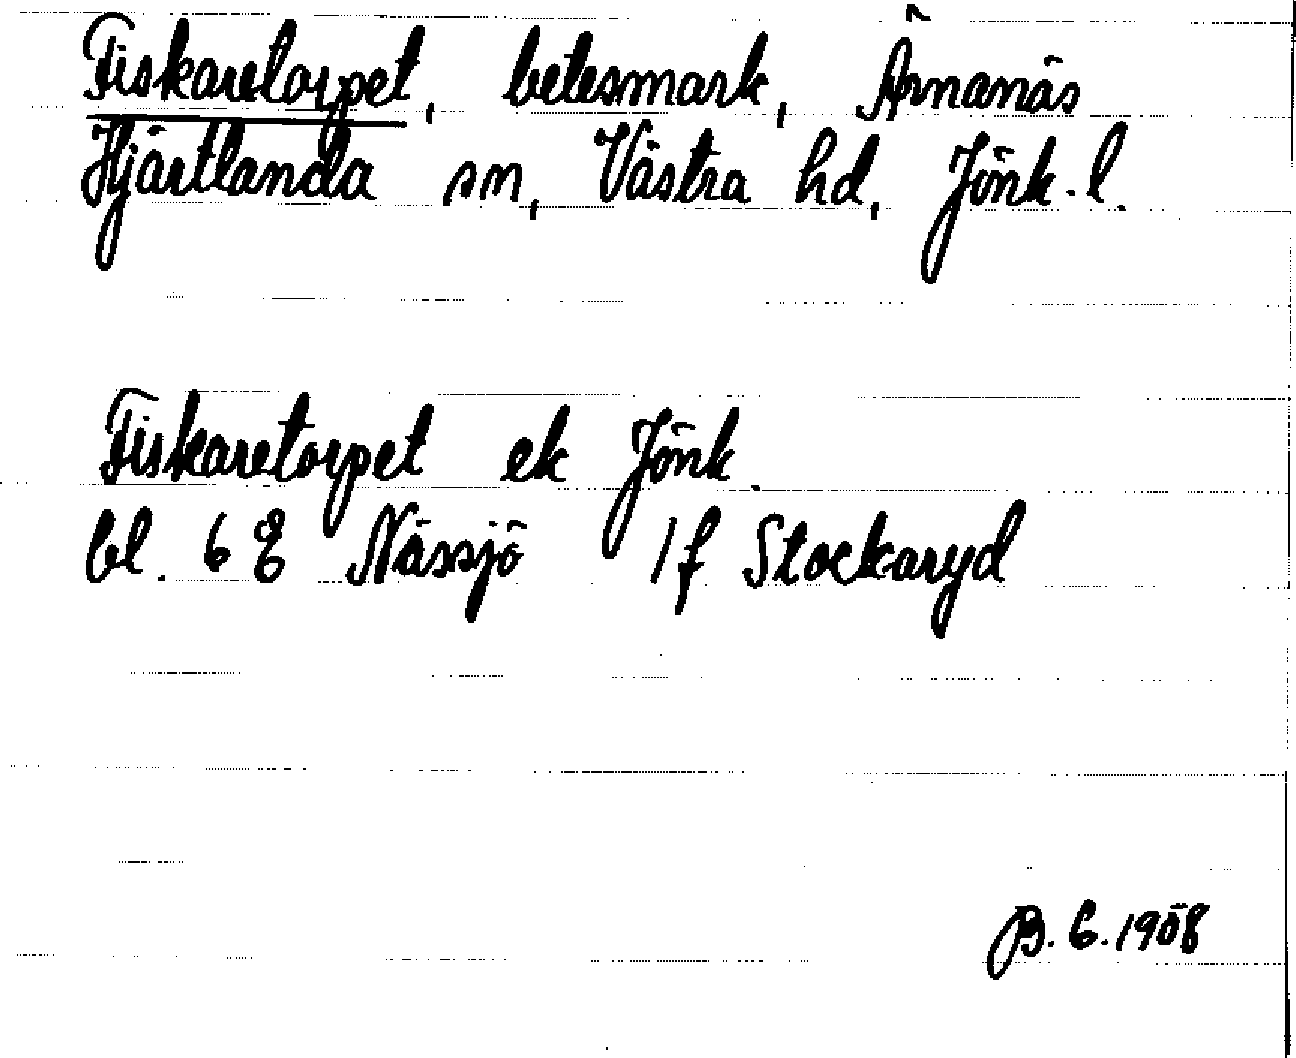 Fiskaretorpet, betesmark, Ärnanäs
Hjärtlanda sn, Västra hd, Jönk. l.
Fiskaretorpet ek Jönk.
bl. 6 E Nässjö 1 f Stockaryd
B. G. 1958